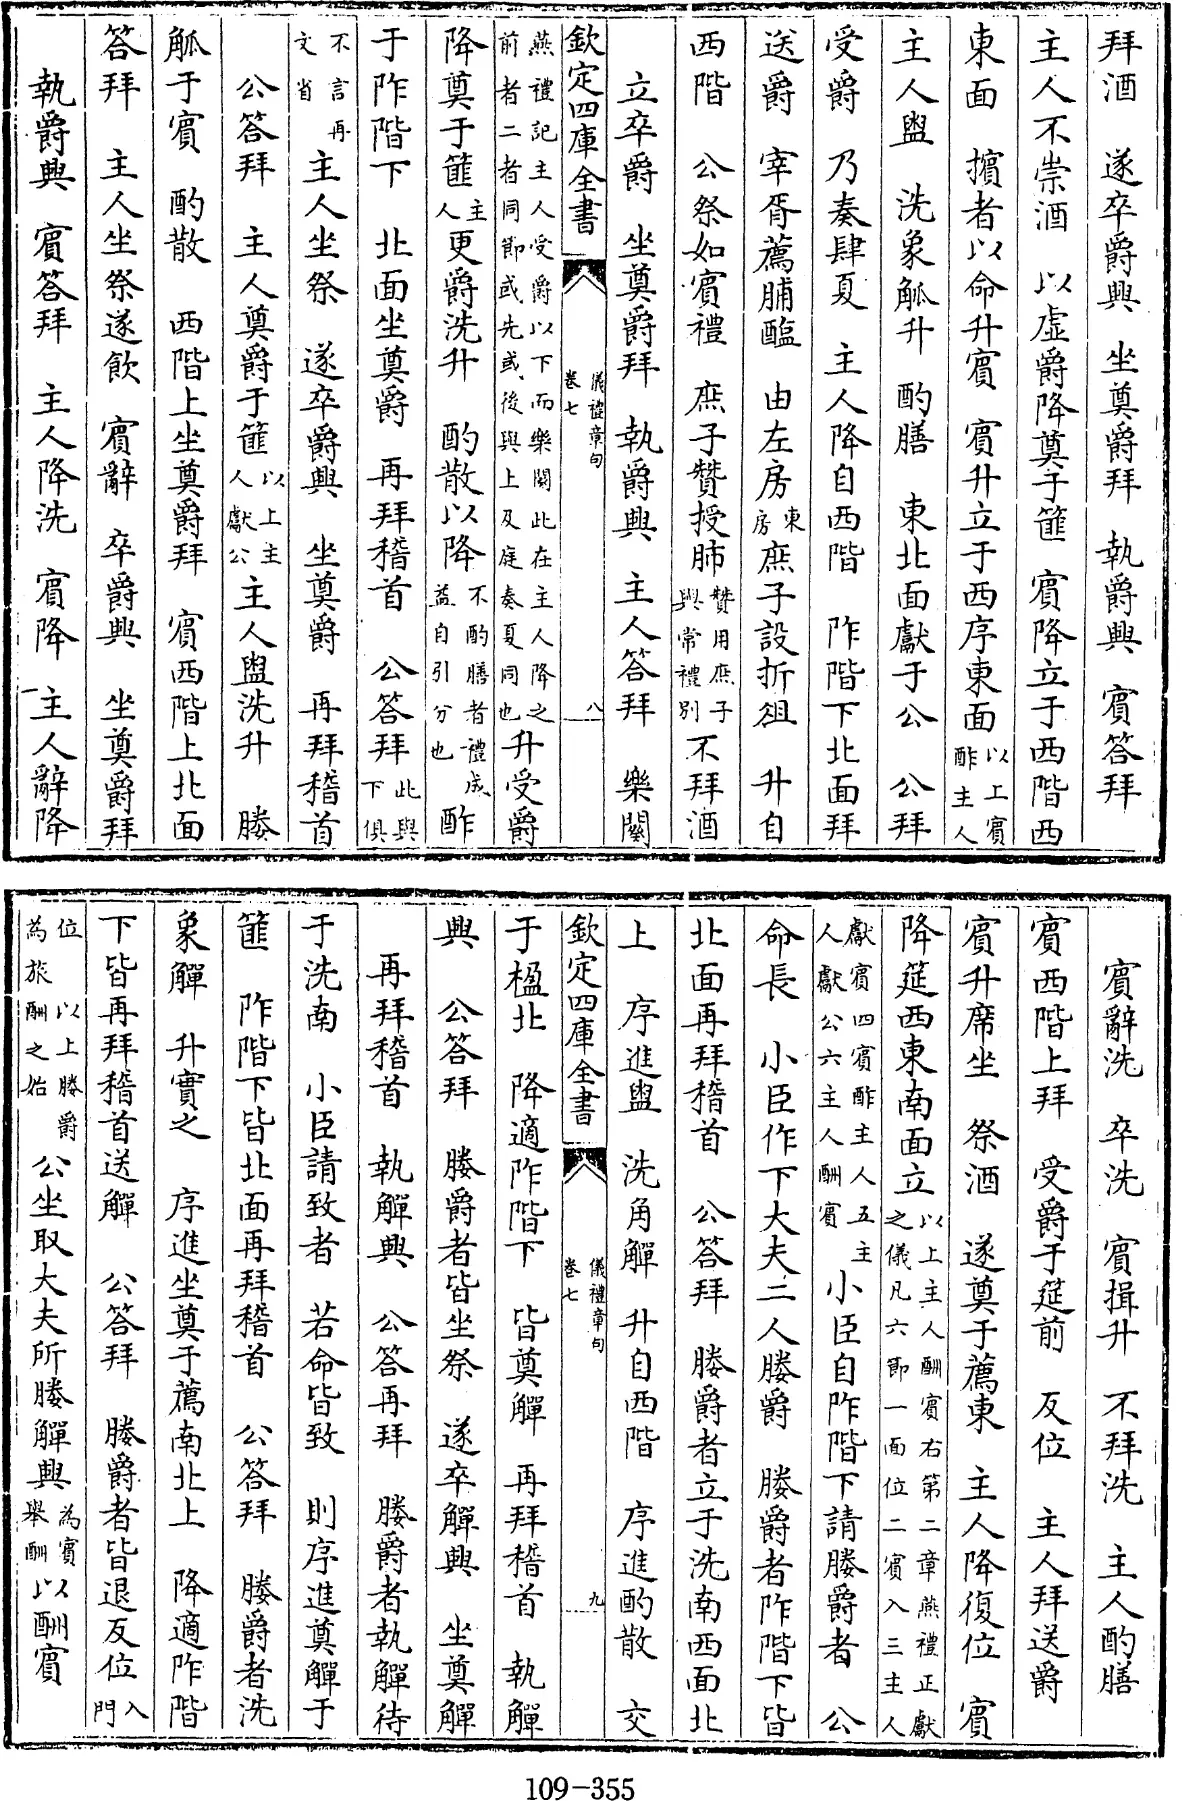 拜酒　遂卒爵興　坐奠爵拜　執爵興　賓答拜
主人不崇酒　以虛爵降奠于篚　賓降立于西階西
東面　擯者以命升賓　賓升立于西序東面以上賓酢主人
主人盥　洗象觚升　酌膳　東北面獻于公　公拜
受爵　乃奏肆夏　主人降自西階　阼階下北面拜
送爵　宰胥薦脯醢　由左房東房庶子設折俎　升自
西階　公祭如賓禮　庶子贊授肺贊用庶子與常禮別不拜酒
立卒爵　坐奠爵拜　執爵興　主人答拜　樂闋
欽定四庫全書　儀禮章句卷七　八
燕禮記主人受爵以下而樂闋此在主人降之前者二者同節或先或後與上及庭奏夏同也升受爵
降奠于篚主人更爵洗升　酌散以降不酌膳者禮成益自引分也酢
于阼階下　北面坐奠爵　再拜稽首　公答拜此與下俱
不言再文省主人坐祭　遂卒爵興　坐奠爵　再拜稽首
公答拜　主人奠爵于篚以上主人獻公主人盥洗升　媵
觚于賓　酌散　西階上坐奠爵拜　賓西階上北面
答拜　主人坐祭遂飲　賓辭　卒爵興　坐奠爵拜
執爵興　賓答拜　主人降洗　賓降　主人辭降
賓辭洗　卒洗　賓揖升　不拜洗　主人酌膳
賓西階上拜　受爵于筵前　反位　主人拜送爵
賓升席坐　祭酒　遂奠于薦東　主人降復位　賓
降筵西東南面立以上主人酬賓右第二章燕禮正獻之儀凡六節一面位二賓入三主人
獻賓四賓酢主人五主人獻公六主人酬賓小臣自阼階下請媵爵者　公
命長　小臣作下大夫二人媵爵　媵爵者阼階下皆
北面再拜稽首　公答拜　媵爵者立于洗南西面北
上　序進盥　洗角觶　升自西階　序進酌散　交
欽定四庫全書　儀禮章句卷七　九
于楹北　降適阼階下　皆奠觶　再拜稽首　執觶
興　公答拜　媵爵者皆坐祭　遂卒觶興　坐奠觶
再拜稽首　執觶興　公答再拜　媵爵者執觶待
于洗南　小臣請致者　若命皆致　則序進奠觶于
篚　阼階下皆北面再拜稽首　公答拜　媵爵者洗
象觶　升實之　序進坐奠于薦南北上　降適阼階
下皆再拜稽首送觶　公答拜　媵爵者皆退反位入門
位　以上媵爵為旅酬之始公坐取大夫所媵觶興為賓舉酬以酬賓
109-355